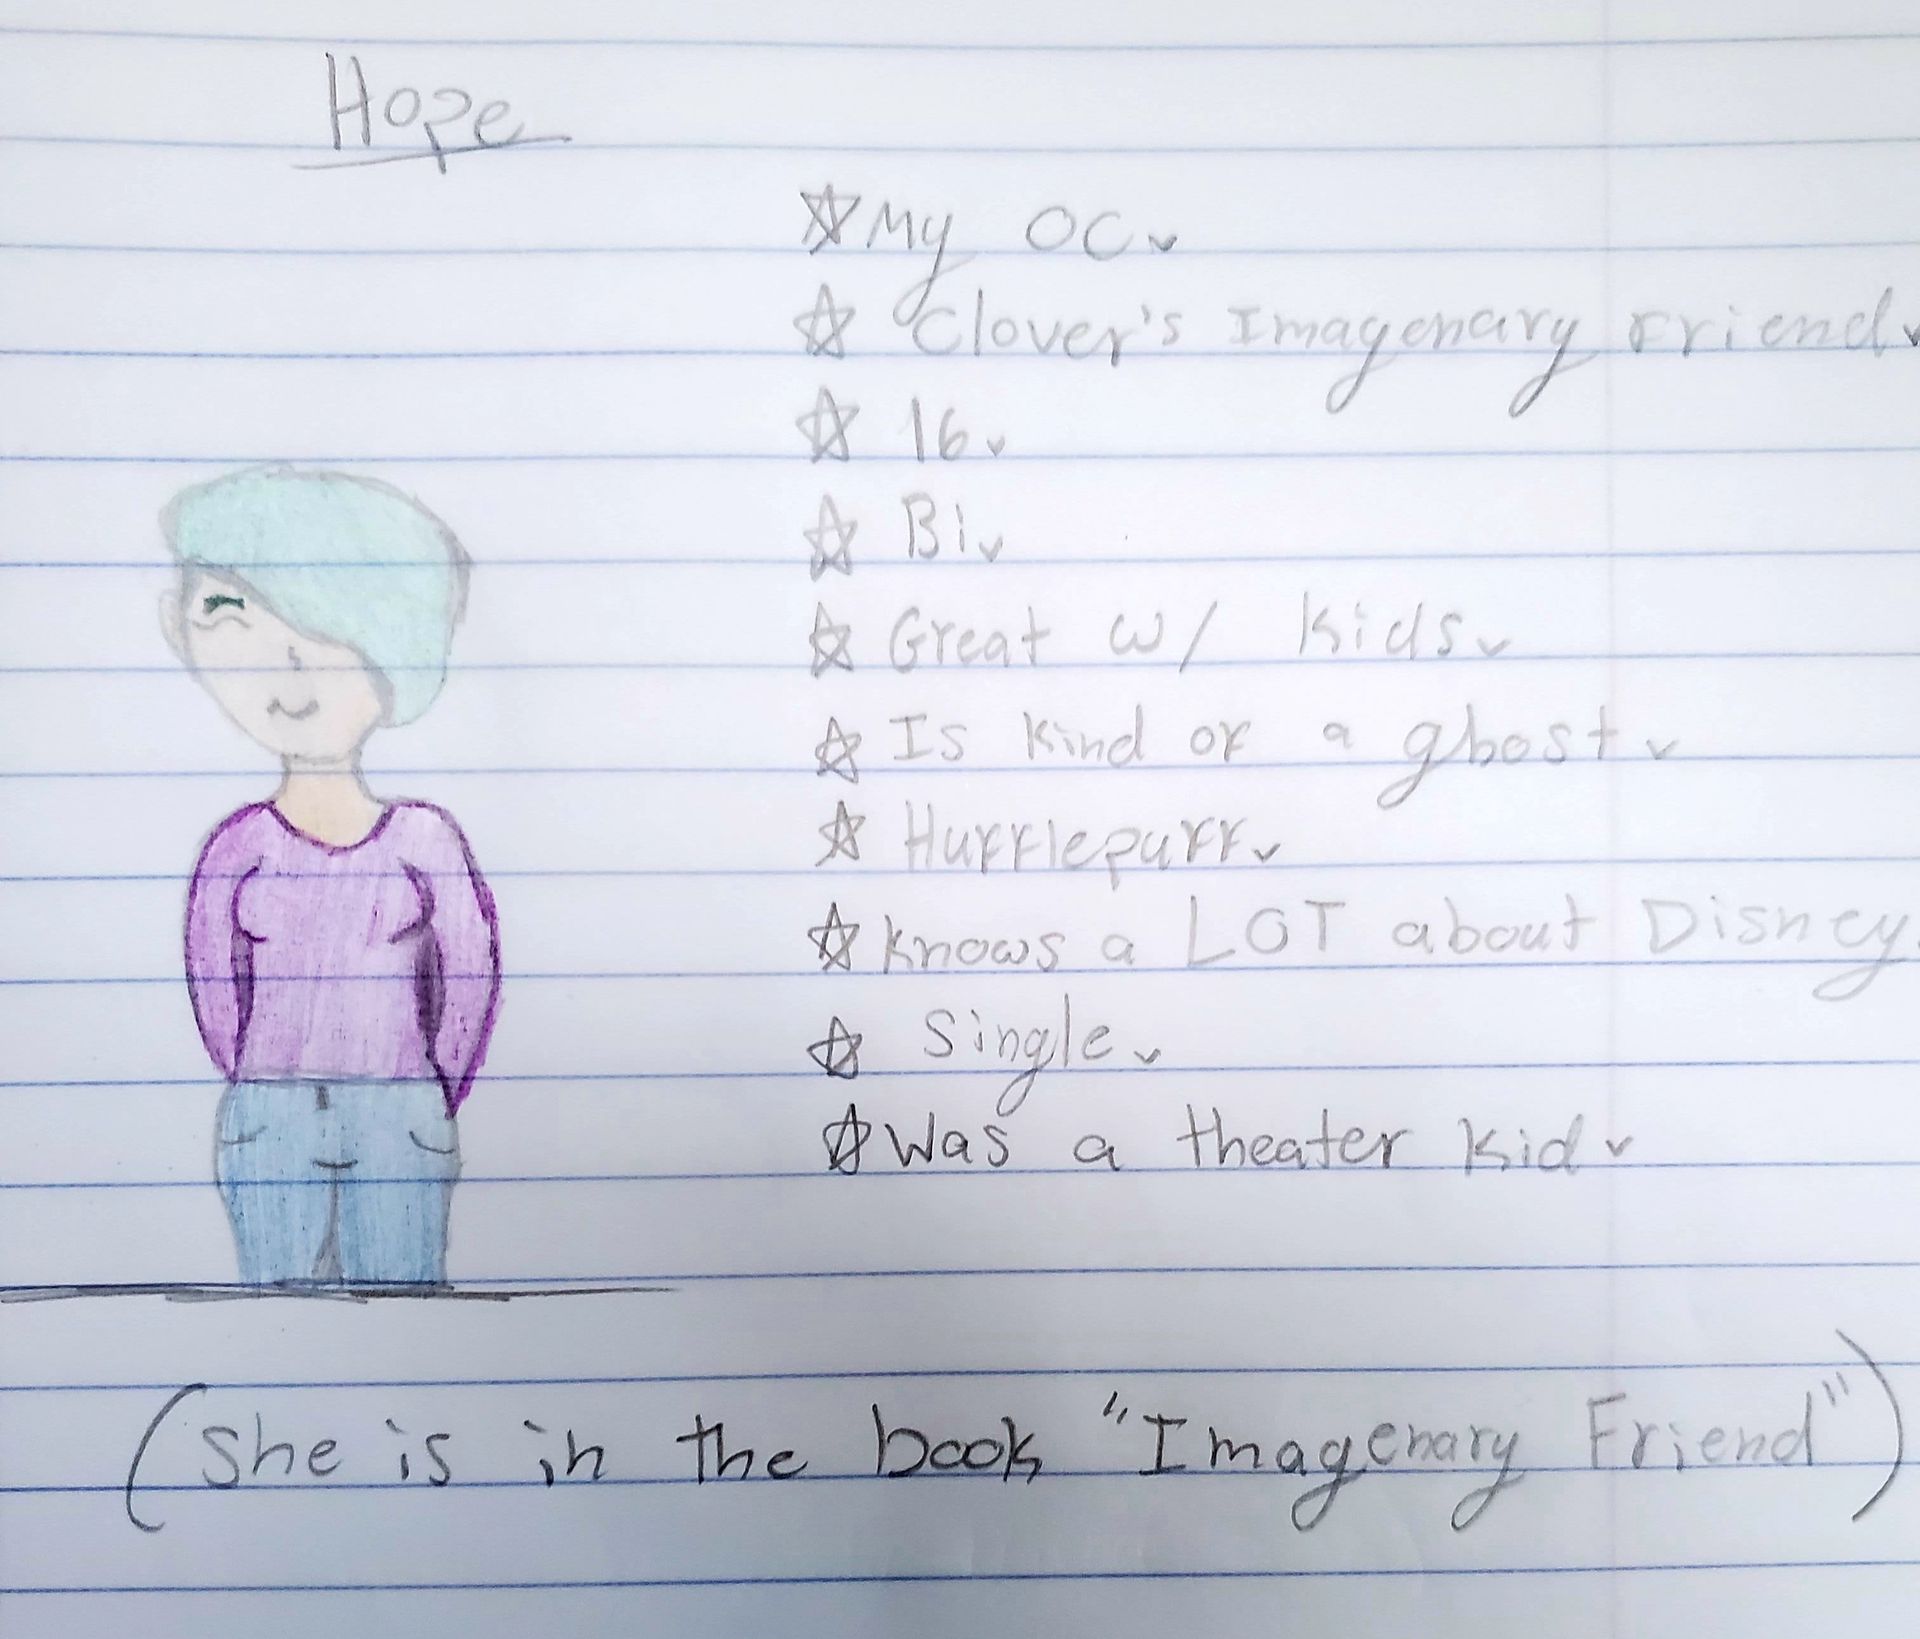 Hope
☆ My OC
☆ Clover's Imagenary Friend
☆ 16
☆ Bi
☆ Great w/ Kids
☆ Is kind of a ghost
☆ Hufflepuff
☆ Knows a LOT about Disney
☆ Single
☆ Was a theater kid
(She is in the book "Imagenary Friend")